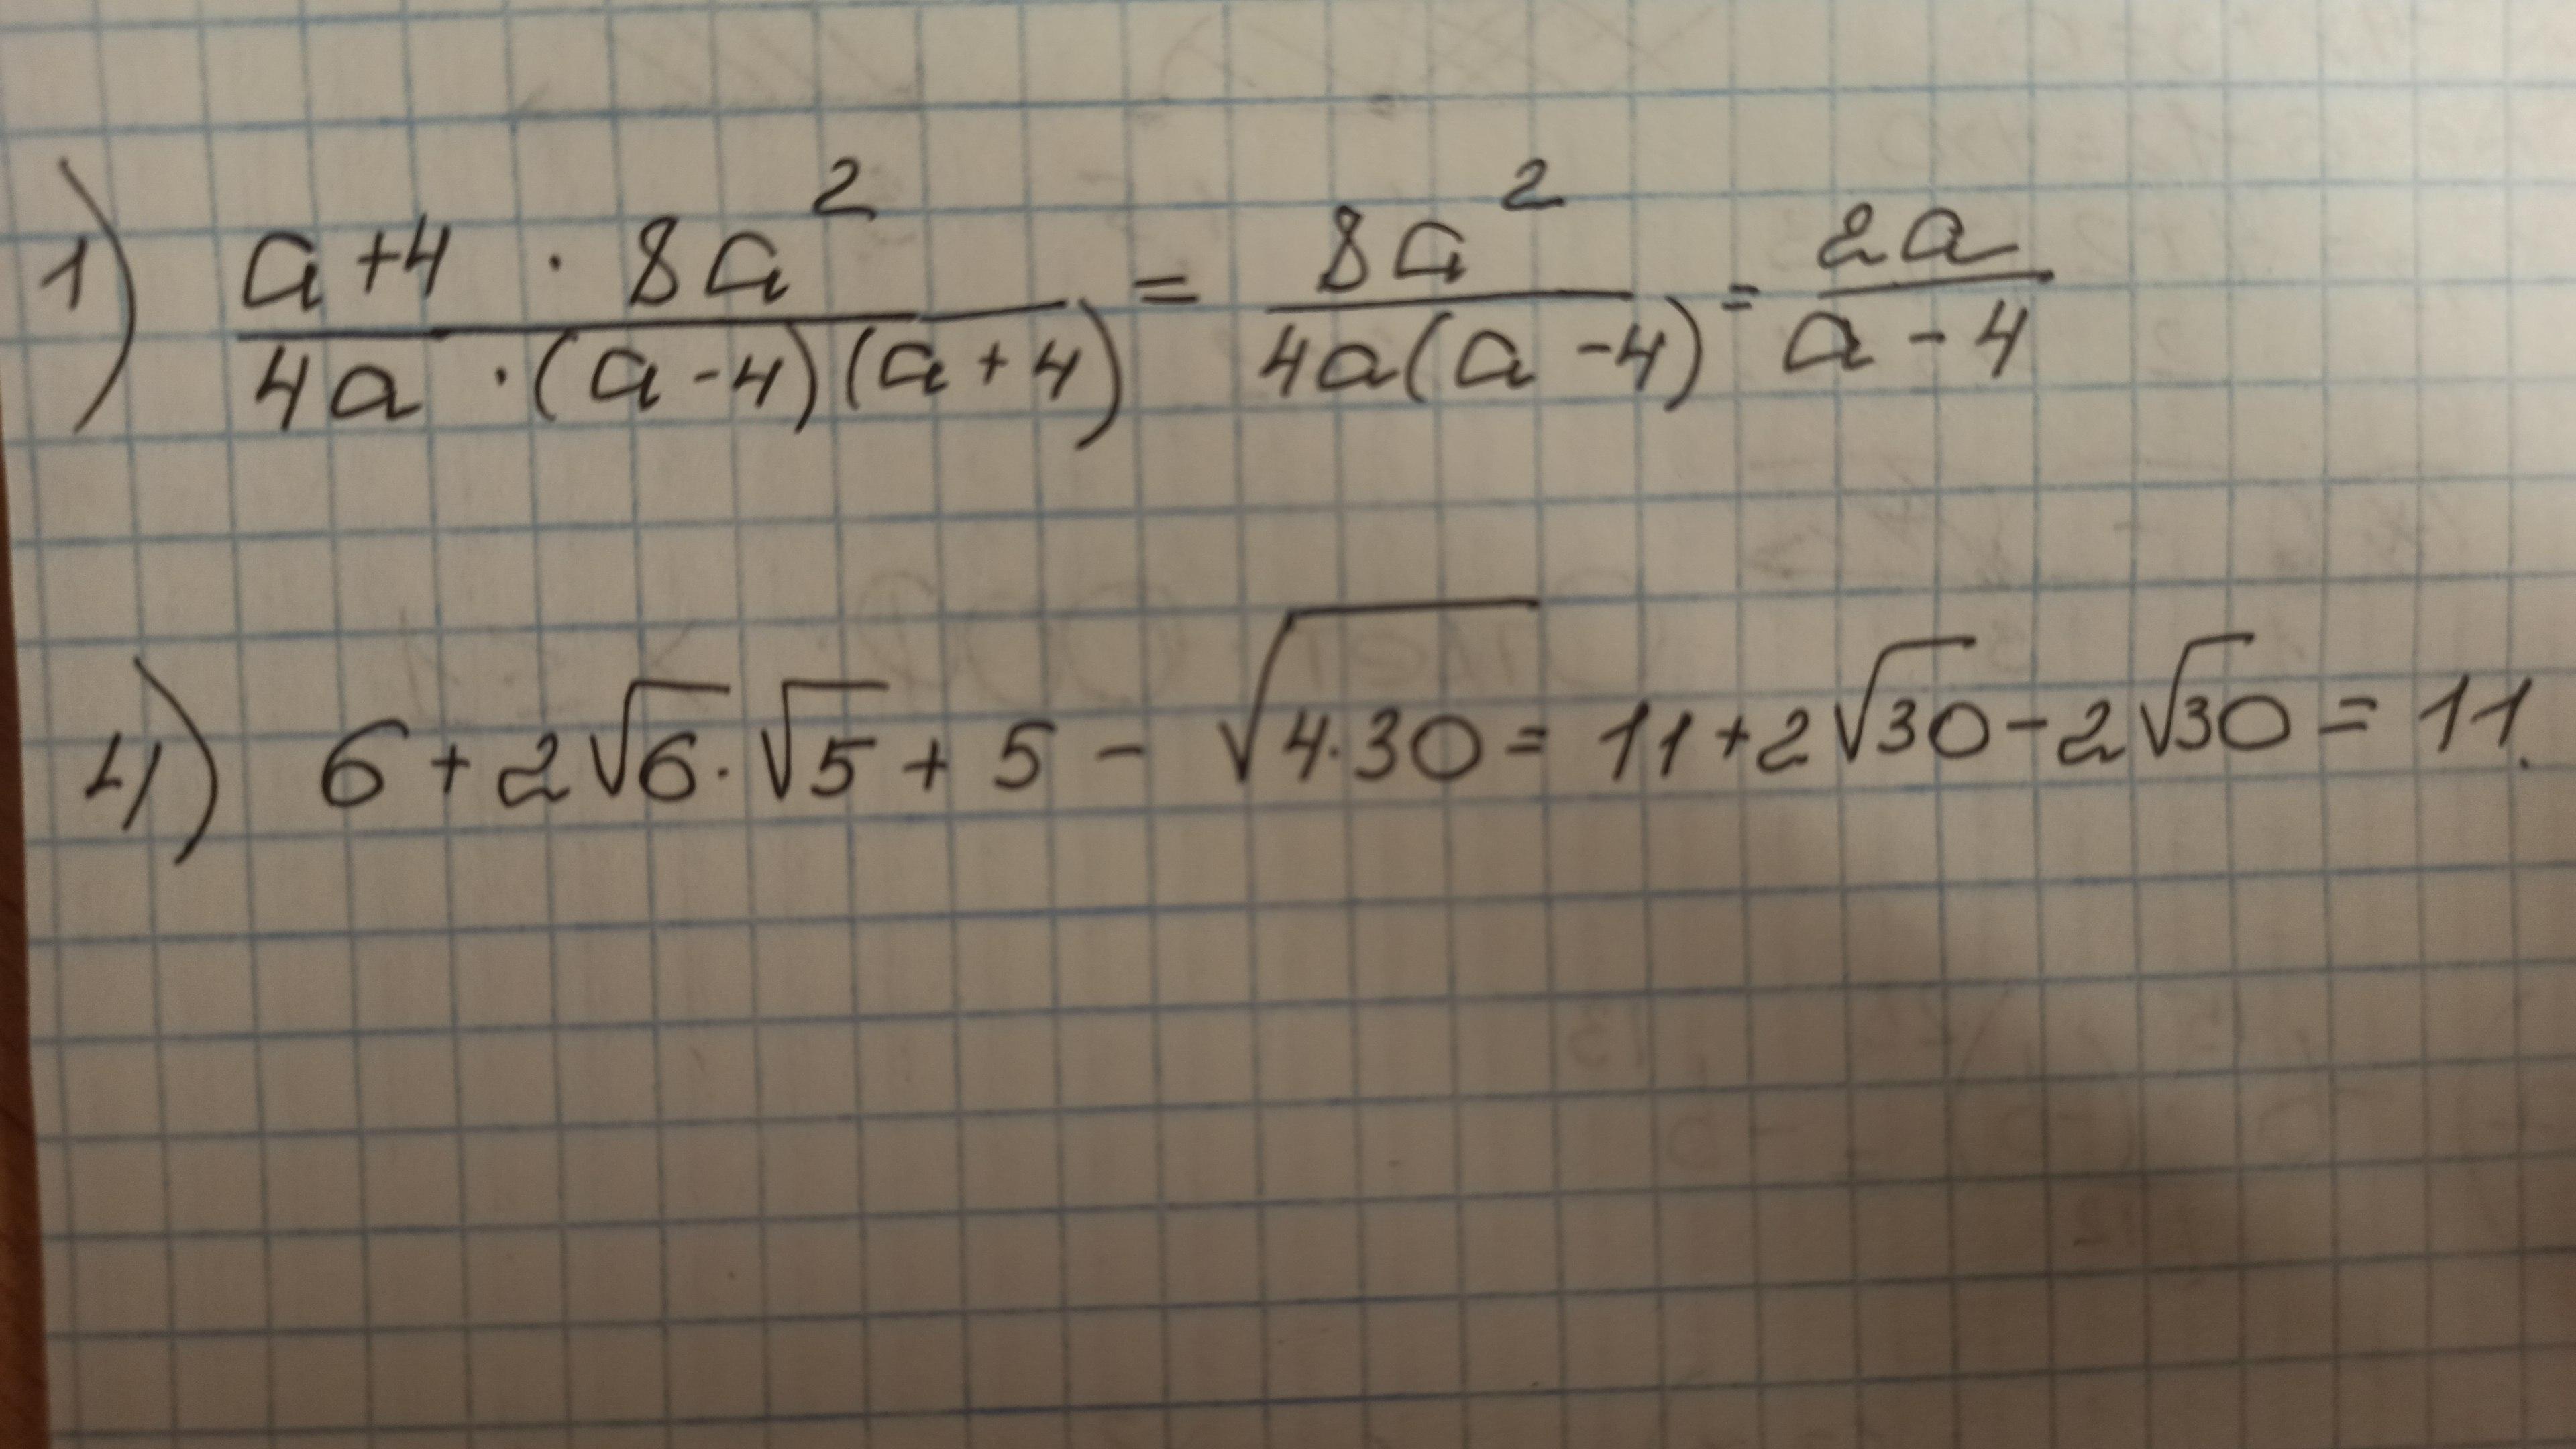 1) a+4 · 8a² / 4a · (a-4)(a+4) = 8a² / 4a(a-4) = 2a / a-4
4) 6+2√6·√5+5-√4·30 = 11+2√30-2√30 = 11.